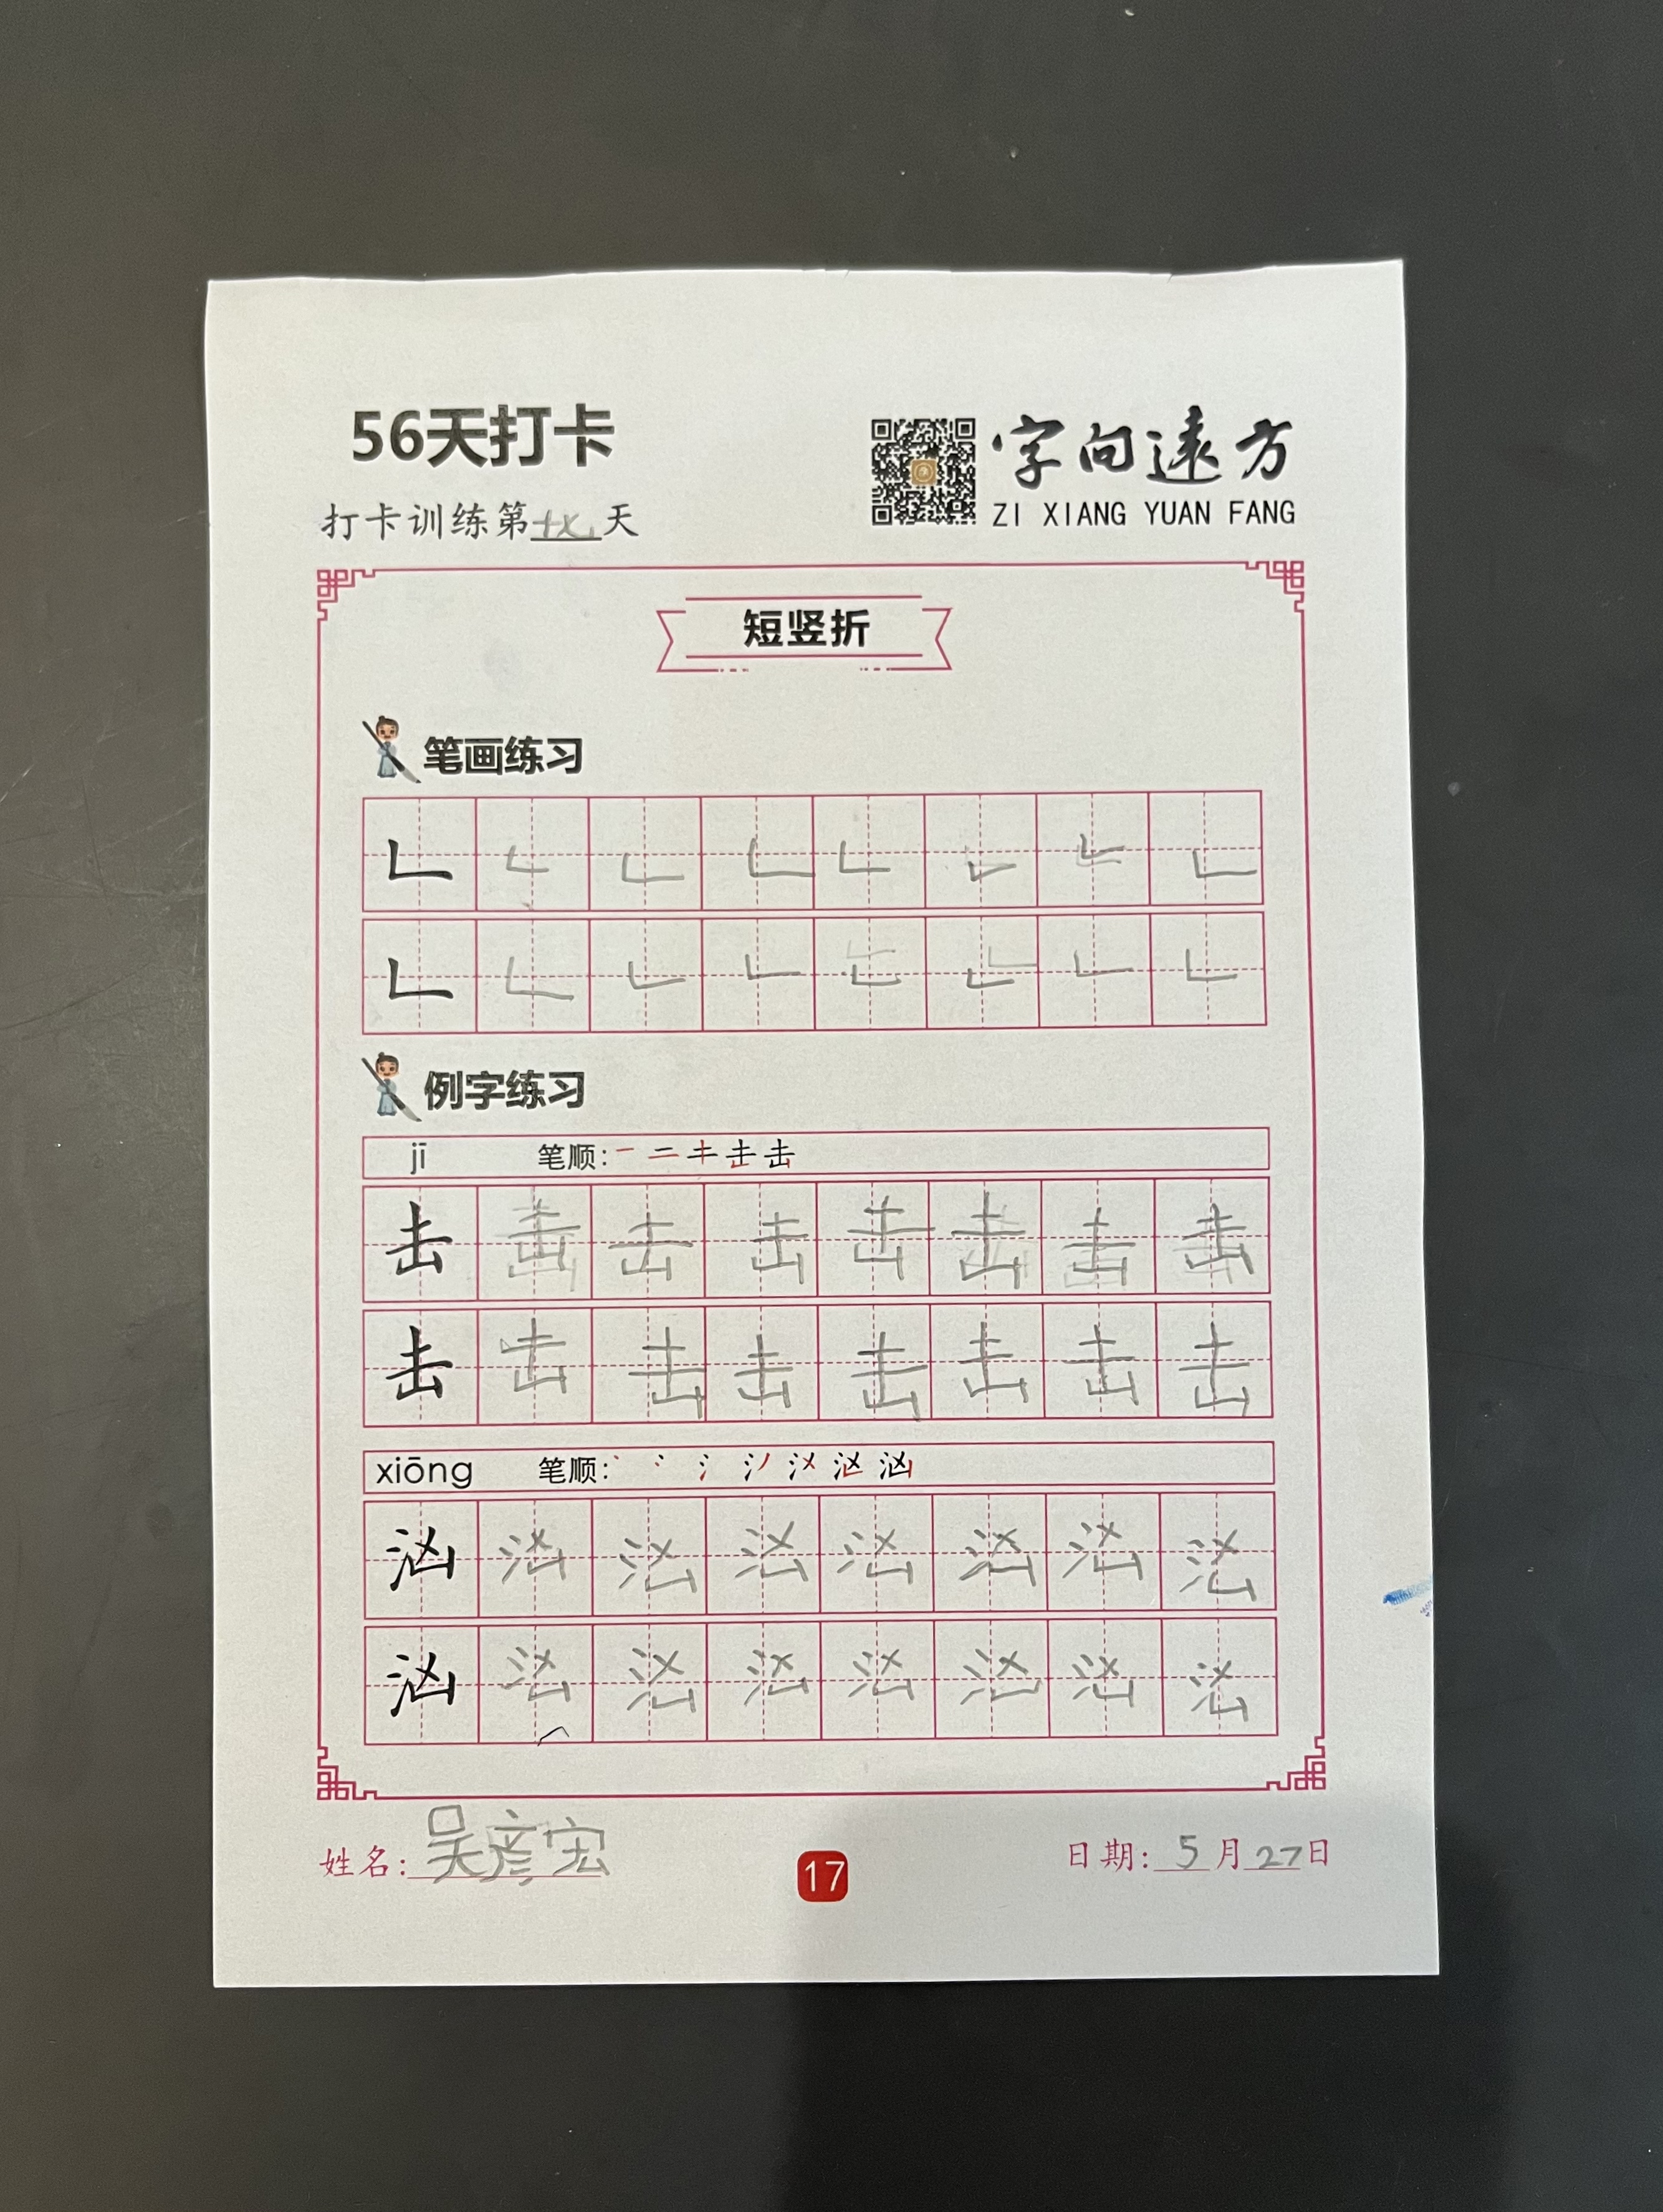 56天打卡
字向遠方
打卡训练第十七天
ZI XIANG YUAN FANG
短竖折
笔画练习
例字练习
jī 笔顺: 一 二 キ 击 击
击 击 击 击 击 击 击 击
击 击 击 击 击 击 击 击
xiōng 笔顺: 丶 冫 氵 汹 汹
汹 汹 汹 汹 汹 汹 汹 汹
汹 汹 汹 汹 汹 汹 汹 汹
姓名: 吴彦宏
17
日期: 5 月 27 日